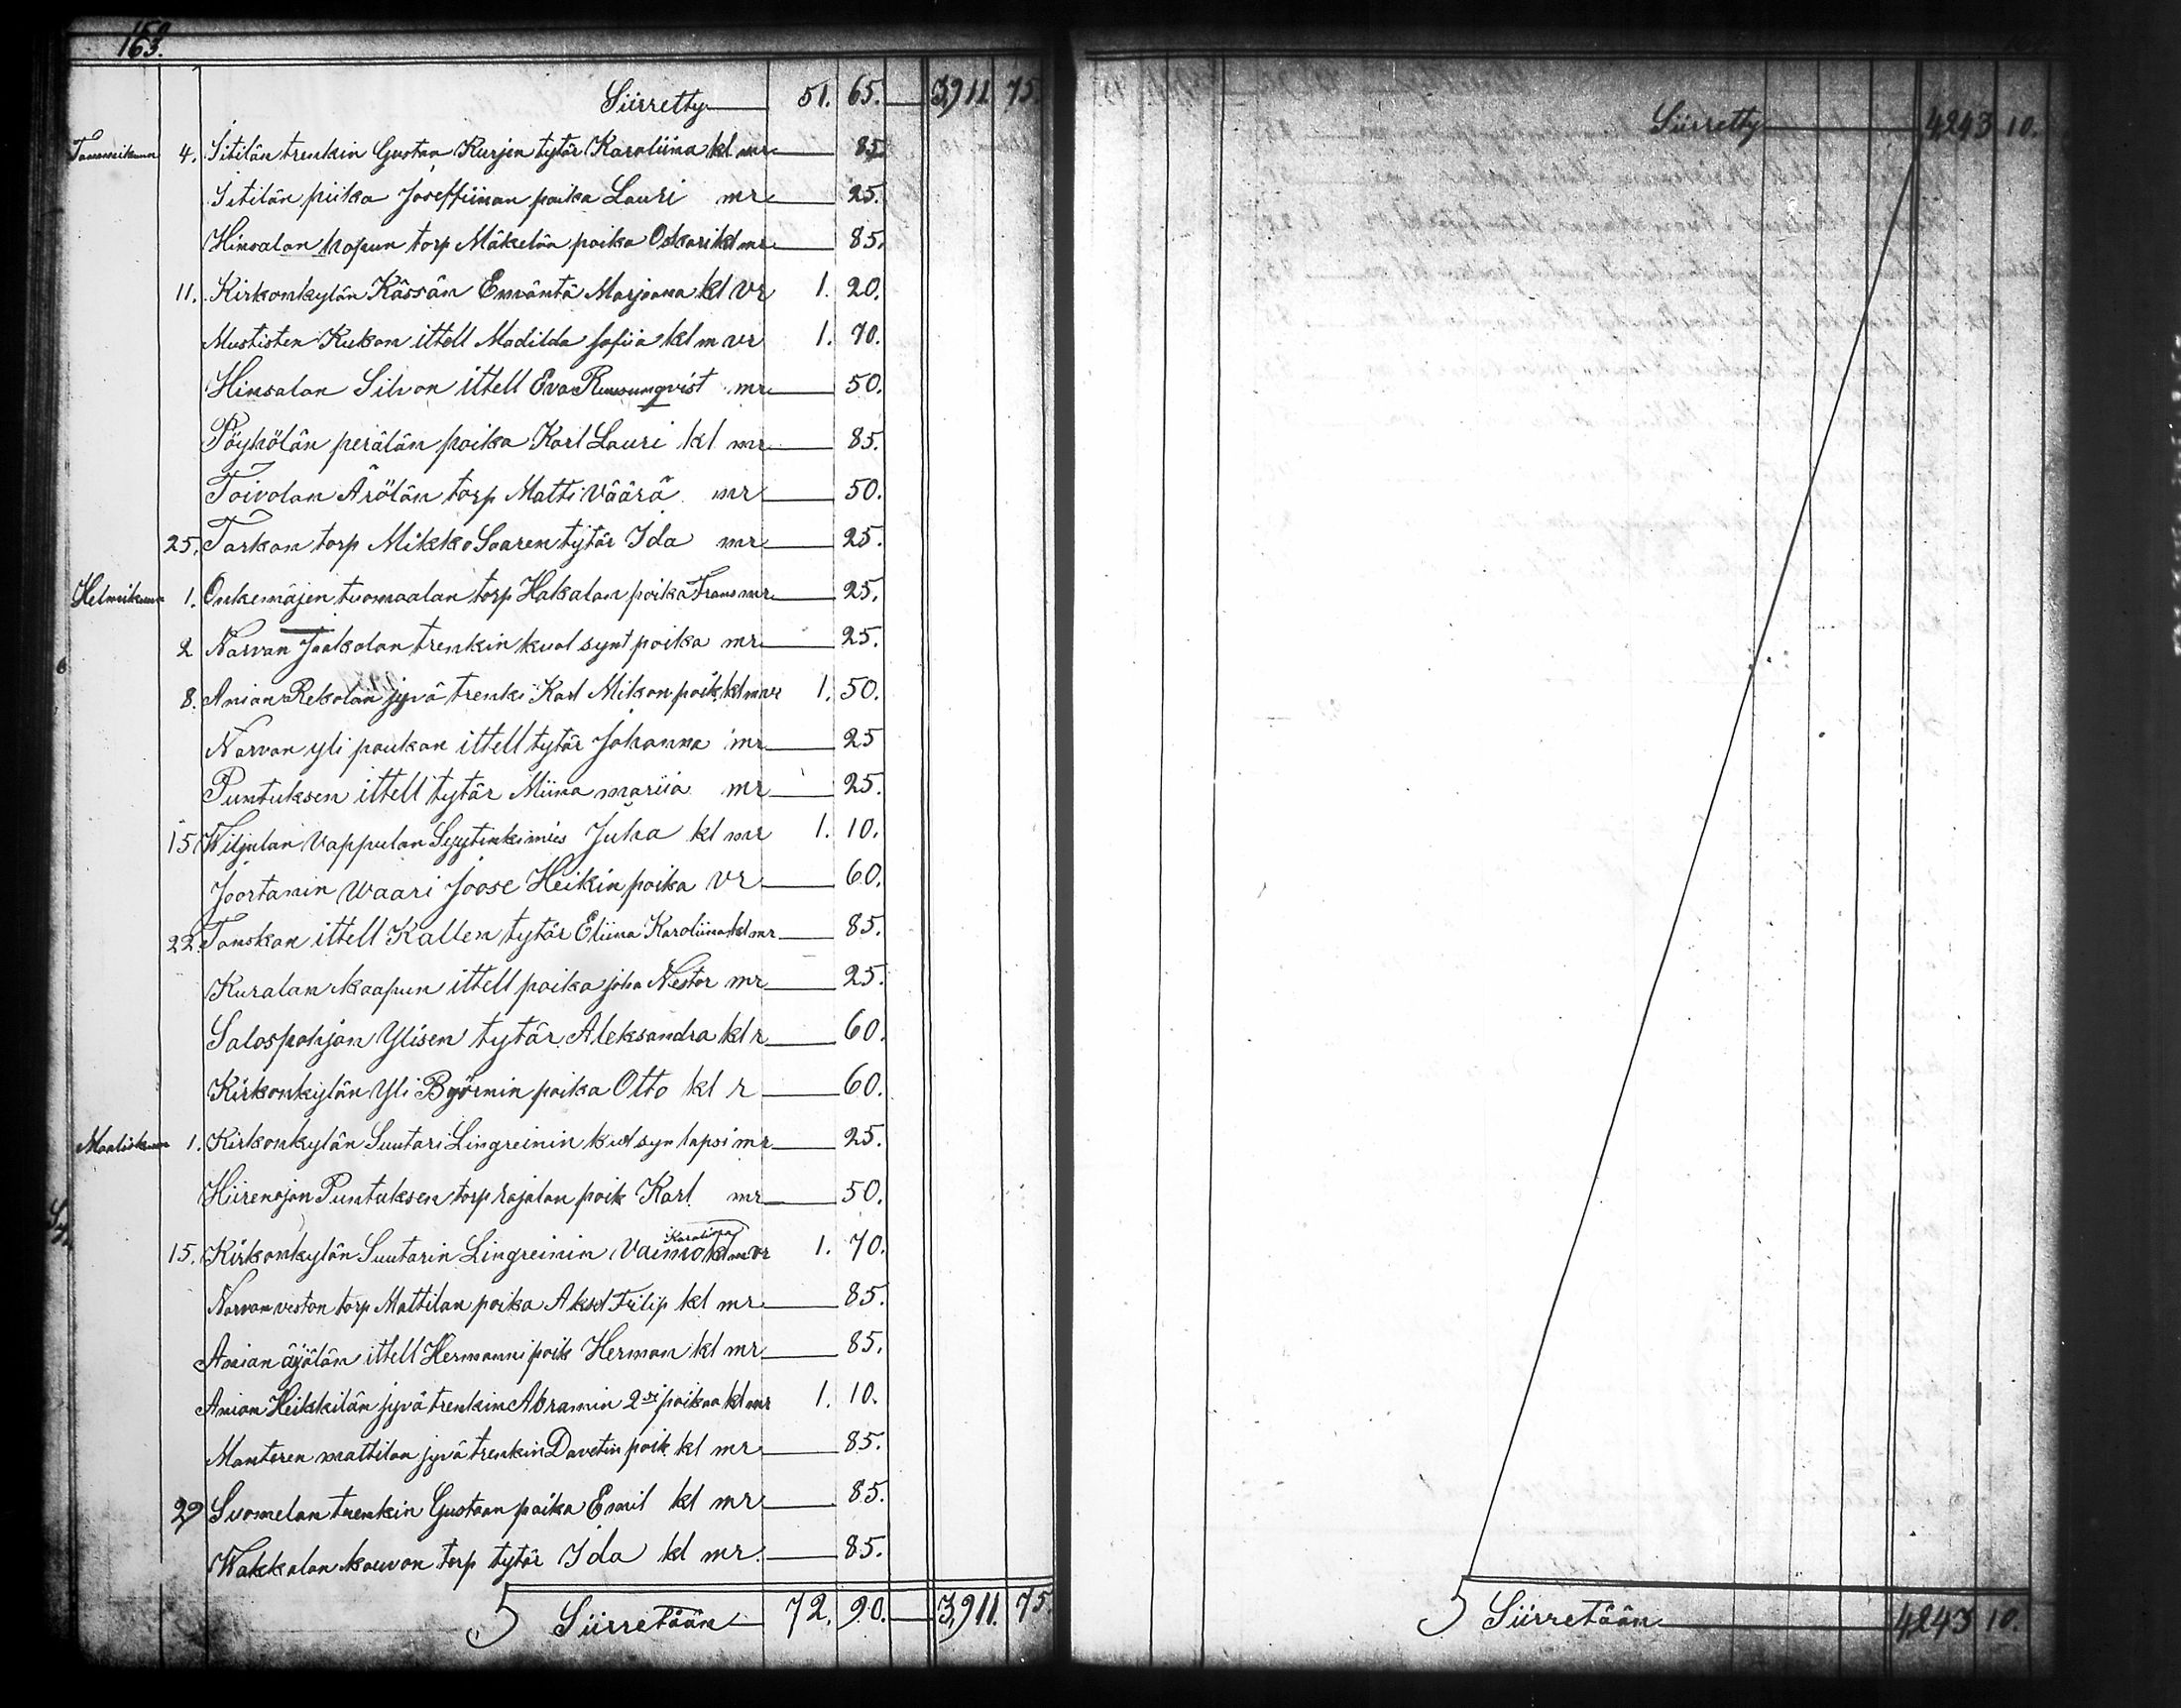 163.
Siirretty 51. 65. 3,911 75.
Tammikuun 4. Sitilän trenkin Gustaa Kurjen tytär Karoliina kl mr 85.
Sitilän piika Joseffiinan poika Lauri mr 25.
Hinsalan papun torp Mäkelän poika Oskari kl mr 85.
11. Kirkonkylän Kässän Emäntä Marjaana kl vr 1. 20.
Mustisten Kukon ittell Madilda Sofiia kl m vr 1. 70.
Hinsalan Silvon ittell Eva mr 50.
Pöyhölän perälän poika Karl Lauri kl mr 85.
Toivolan Ärölän torp Matti Väärä mr 50.
25. Tarkan torp Mikko Saaren tytär Ida mr 25.
Helmikuun 1. Onkemäjen tuomaalan torp Hakalan poika Frans mr 25.
2 Narvan Jaakolan trenkin kuol synt poika mr 25.
8. Anian Rekolan jyvä trenki Karl Mikon poik. kl m vr 1. 50.
Narvan yli paukan ittell tytär Johanna mr 25
Puntuksen ittell tytär Miina mariia mr 25.
15 Wiljulan Vappulan Syytinkimies Juha kl mr 1. 10.
Joortanin Waari Joose Heikin poika vr 60.
22. Tanskan ittell Kallen tytär Eliina Karoliina kl mr 85.
Kuralan kaapun ittell poika joha Nestor mr 25.
Salospohjan Ylisen tytär Aleksandra kl r 60.
Kirkonkylän Yli Byörnin poika Otto kl r 60.
Maaliskuun 1. Kirkonkylän Suutari Lingreinin kuol syn lapsi mr 25.
Hiirenojan Puntuksen torp rajalan poik Karl mr 50.
Karoliina
15. Kirkonkylän Suutarin Lingreinin Vaimo kl m vr 1. 70.
Narvan veston torp Mattilan poika Aksel Filip kl mr 85.
Anian äijälän ittell Hermanni poik Herman kl mr 85.
Anian Heikkilän jyvä trenkin Abramin 2si poikaa kl mr 1. 10.
Manteren mattilan jyvä trenkin Davetin poik kl mr 85.
29 Suomelan trenkin Gustaan poika Emil kl mr 85.
Wakkalan kouvon torp tytär Ida kl mr. 85.
Siirretään 72. 90. 3,911. 75.
Siirretty 4243 10.
Siirretään 4243 10.